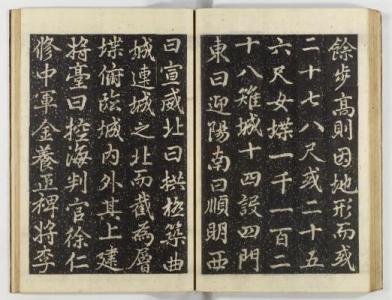 餘步高則因地形而或
二十七八尺或二十五
六尺女堞一千一百二
十八雉城十四設四門
東曰迎陽南曰順明西
曰宣威北曰拱極築曲
城連城之北而截為層
堞俯臨城內外其上建
將臺曰控海判官徐仁
修中軍金養正稗將李